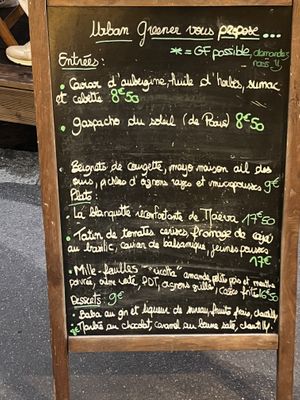 Urban Greener vous propose...
* = GF possible, demandez
nous !!
Entrées :
• Caviar d'aubergine, huile d'herbes, sumac
et cebette 8€50
• gaspacho du soleil (de Rosie) 8€50
• Beignets de courgette, mayo maison ail des
ours, pickles d'oignons rouges et micropousses 9€
Plats :
• La blanquette réconfortante de Maeva 17€50
• Tatin de tomates cerises fromage de cajou
au basilic, caviar de balsamique, jeunes pousses
17€
• Mille-feuilles "ricotta" amande, petits pois et menthe
poivrée, crème verte PDT, oignons grillés, câpres frites 16€50
Desserts : 9€
• Baba au gin et liqueur de sureau, fruits frais, chantilly
• Marbré au chocolat, caramel au beurre salé, chantilly.